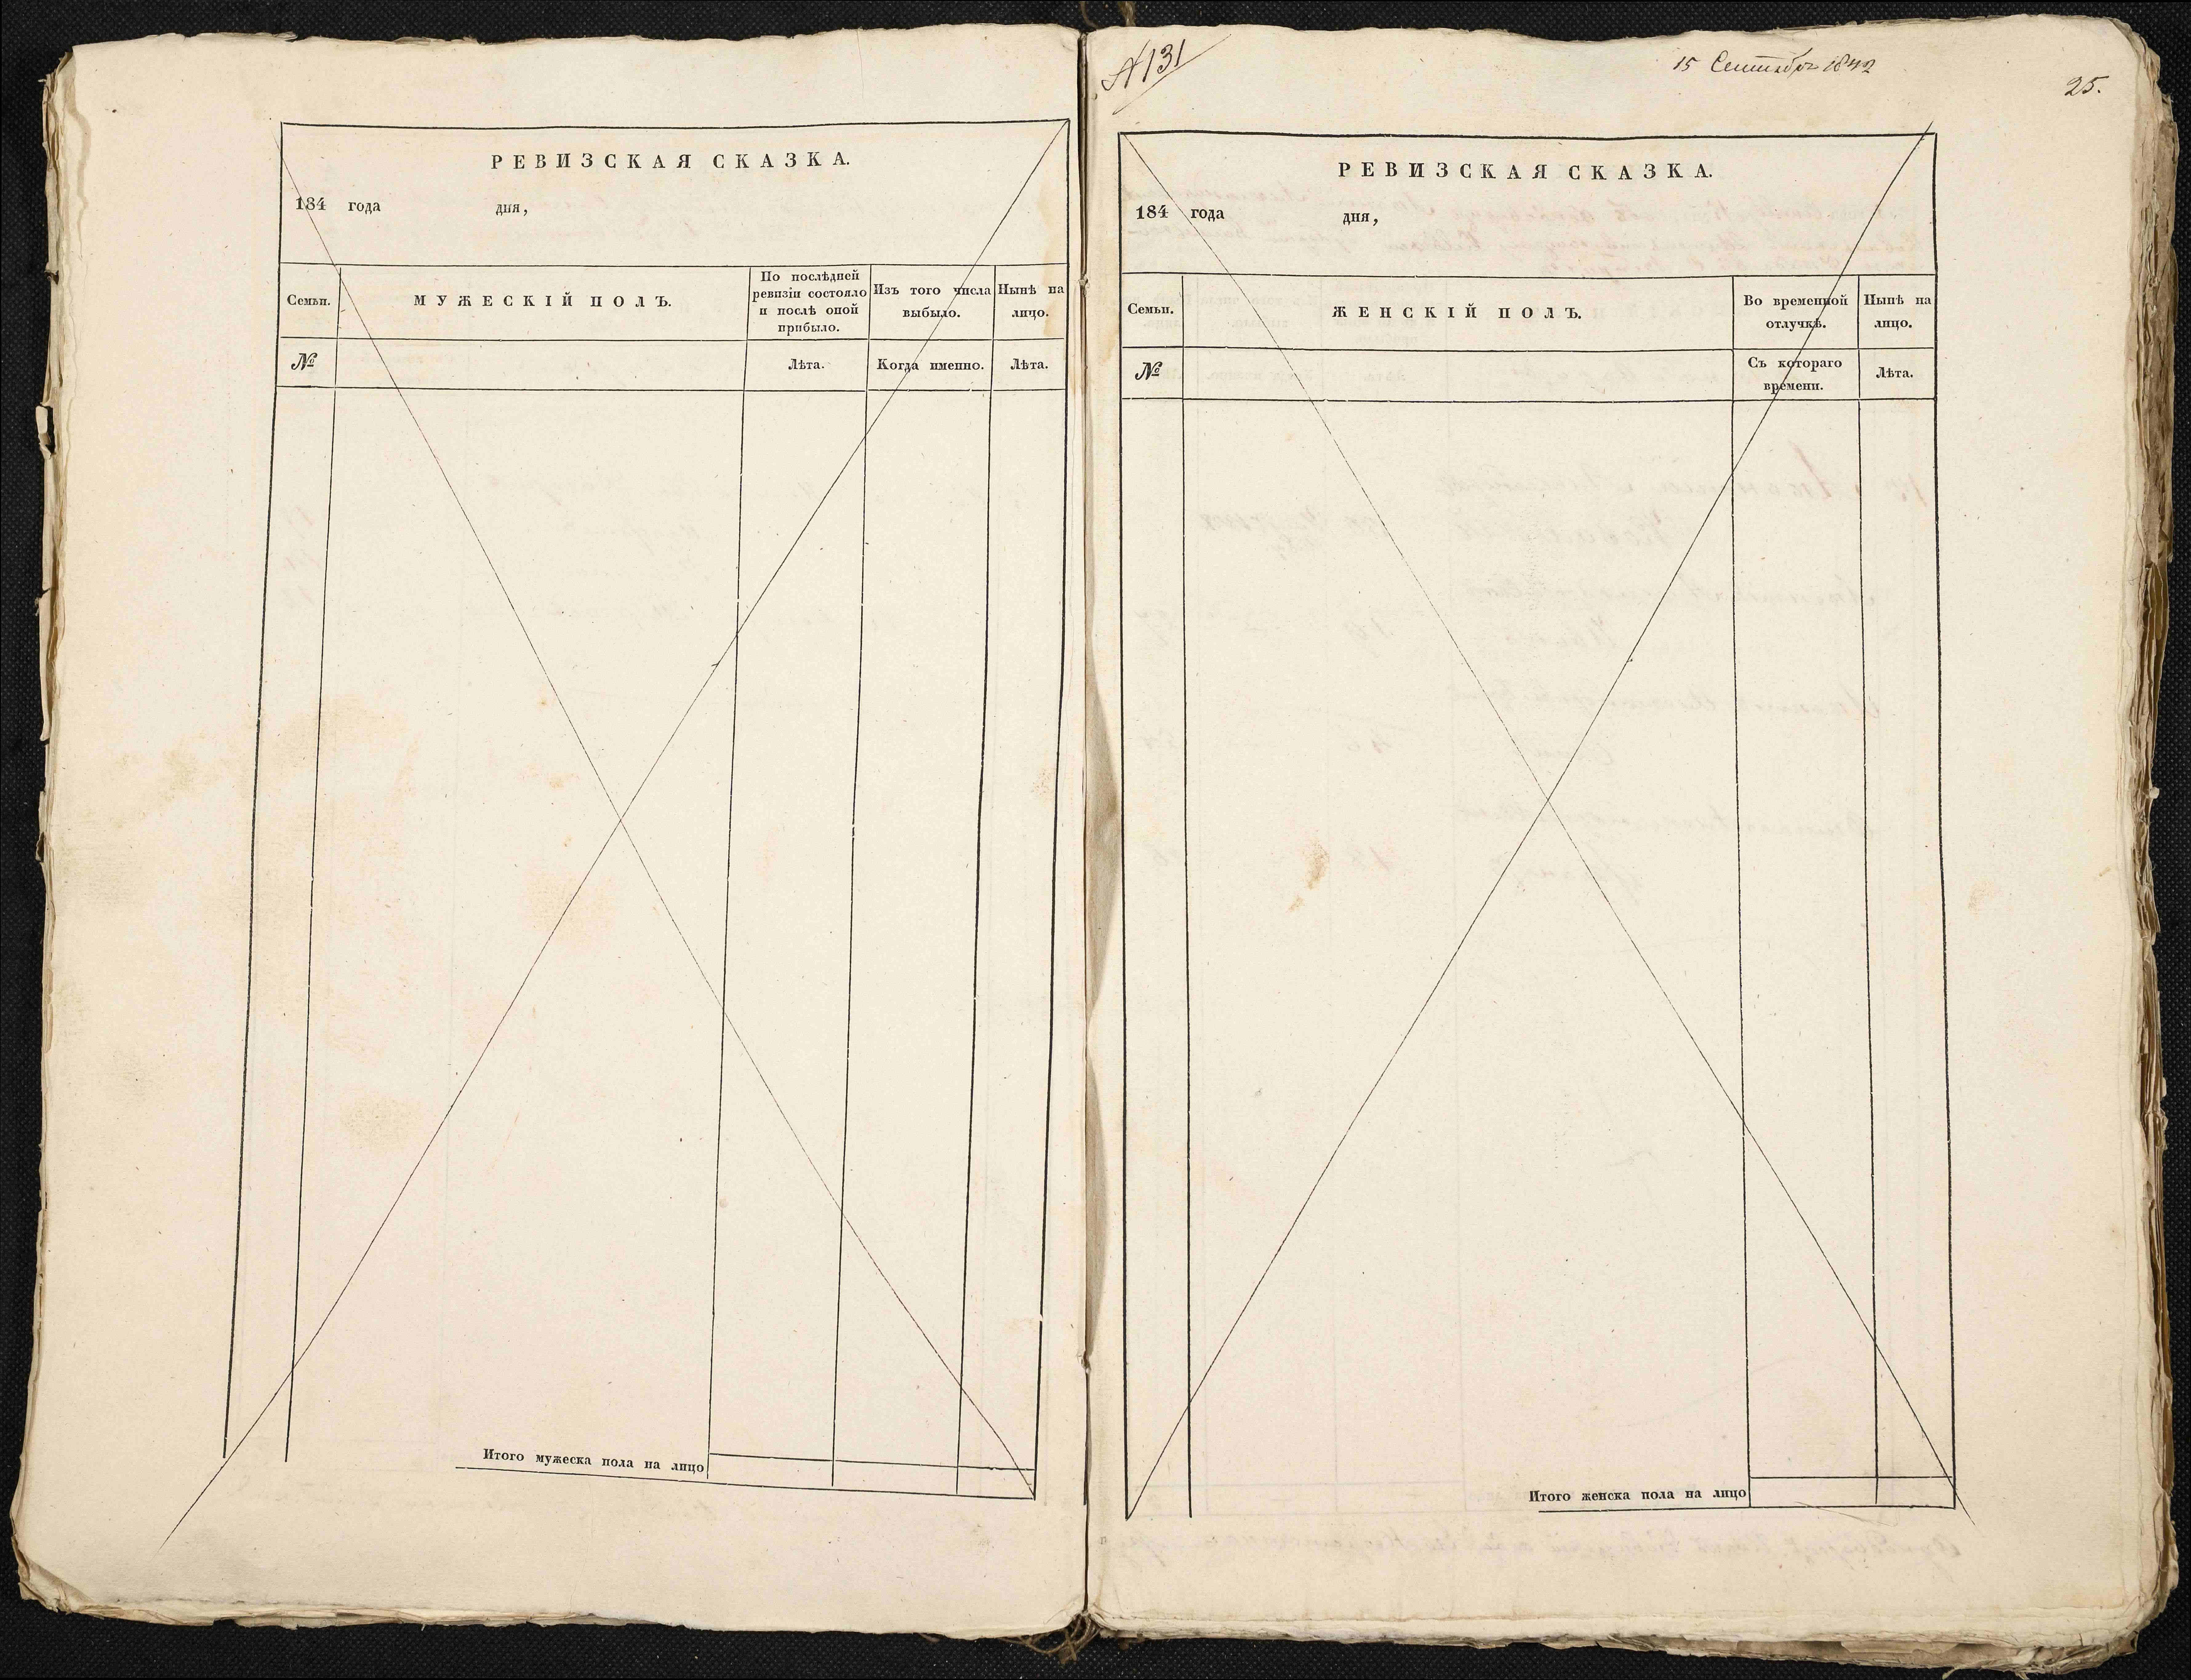 РЕВИЗСКАЯ СКАЗКА.
184 года дня,
Семьи.
МУЖЕСКІЙ ПОЛЪ.
По послѣдней
ревизіи состояло
и послѣ оной
прибыло.
Изъ того числа
выбыло.
Нынѣ на
лицо.
№
Лѣта.
Когда именно.
Лѣта.
Итого мужеска пола на лицо
№ 131
15 Сентября 1842
25.
РЕВИЗСКАЯ СКАЗКА.
184 года дня,
Семьи.
ЖЕНСКІЙ ПОЛЪ.
Во временной
отлучкѣ.
Нынѣ на
лицо.
№
Съ котораго
времени.
Лѣта.
Итого женска пола на лицо